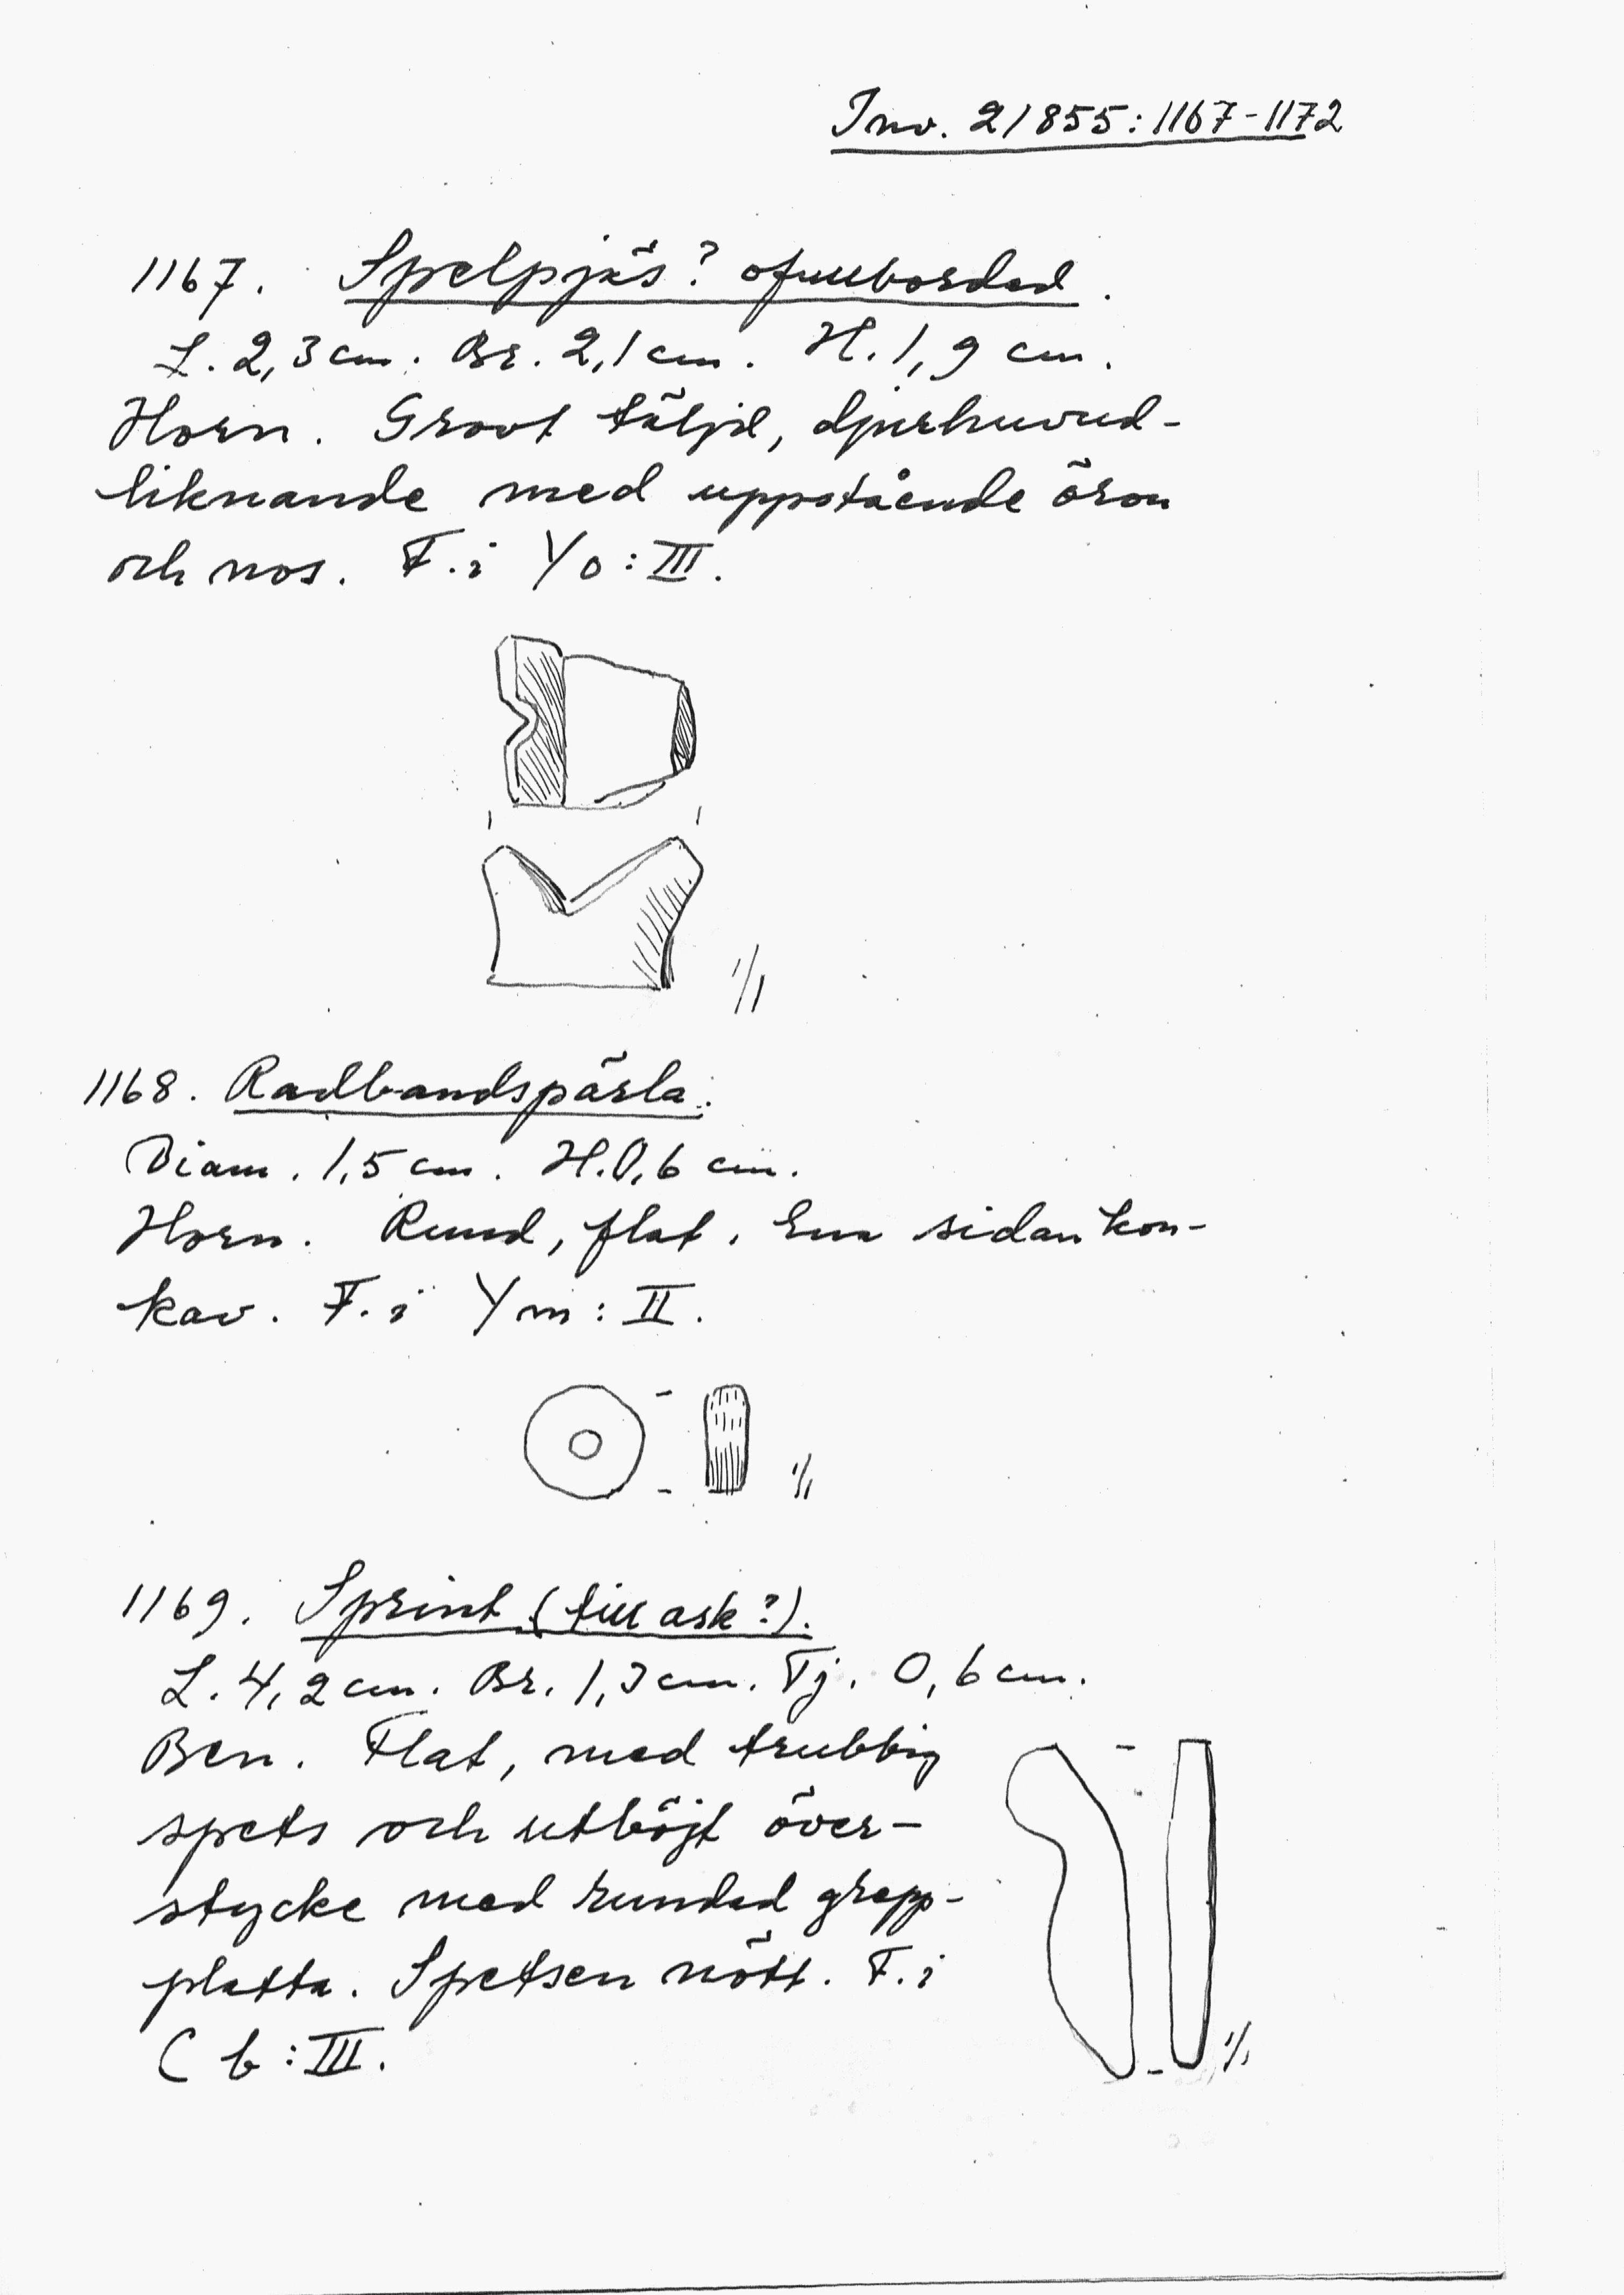 Inv. 21855:1167-1172
1167. Spelpjäs? ofullbordad.
L. 2,3 cm. Br. 2,1 cm. H. 1,9 cm.
Horn. Grovt täljd, djurhuvud-
liknande med uppstående öron
och nos. F. i Yo:III.
1/1
1168. Radbandspärla.
Diam. 1,5 cm. H. 0,6 cm.
Horn. Rund, flat. Ena sidan kon-
kav. F. i Ym:II.
1/1
1169. Sprint (till ask?).
L. 4,2 cm. Br. 1,3 cm. Tj. 0,6 cm.
Ben. Flat, med trubbig
spets och utböjt över-
stycke med rundad grepp-
platta. Spetsen nött. F. i
Cb:III.
1/1